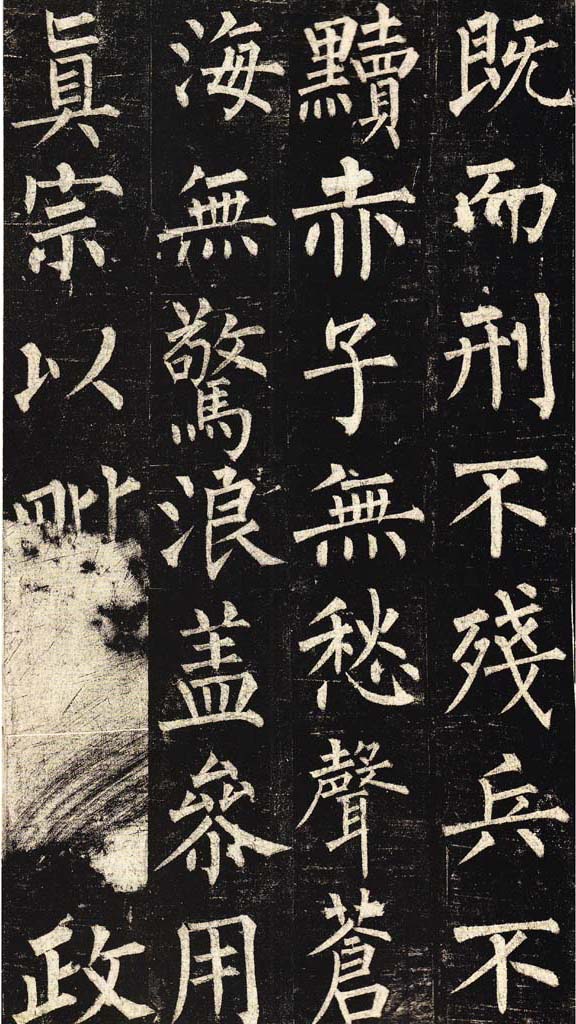 既而刑不殘兵不
黷赤子無愁聲蒼
海無驚浪盖參用
眞宗以毗政